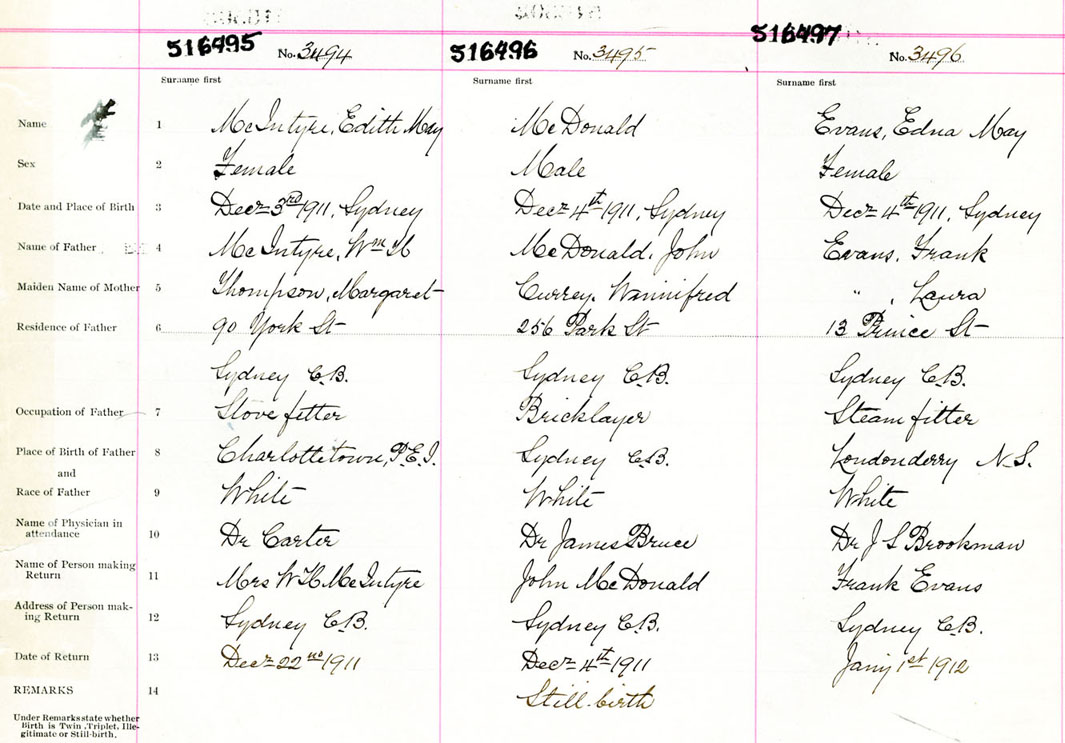 516495 No. 3494 516496 No. 3495 516497 No. 3496
Surname first Surname first Surname first
Name 1 McIntyre, Edith May McDonald Evans, Edna May
Sex 2 Female Male Female
Date and Place of Birth 3 Decr 3rd 1911, Sydney Decr 4th 1911, Sydney Decr 4th 1911, Sydney
Name of Father 4 McIntyre, Wm H McDonald, John Evans, Frank
Maiden Name of Mother 5 Thompson, Margaret Currey, Winnifred " , Laura
Residence of Father 6 90 York St 256 Park St 13 Prince St
Sydney C.B. Sydney C.B. Sydney C.B.
Occupation of Father 7 Stove fitter Bricklayer Steam fitter
Place of Birth of Father 8 Charlottetown, P.E.I. Sydney C.B. Londonderry N.S.
and
Race of Father 9 White White White
Name of Physician in
attendance 10 Dr Carter Dr James Bruce Dr J S Brookman
Name of Person making
Return 11 Mrs W H McIntyre John McDonald Frank Evans
Address of Person mak-
ing Return 12 Sydney C.B. Sydney C.B. Sydney C.B.
Date of Return 13 Decr 22nd 1911 Decr 4th 1911 Jany 1st 1912
REMARKS 14 Still-birth
Under Remarks state whether
Birth is Twin, Triplet, Ille-
gitimate or Still-birth.